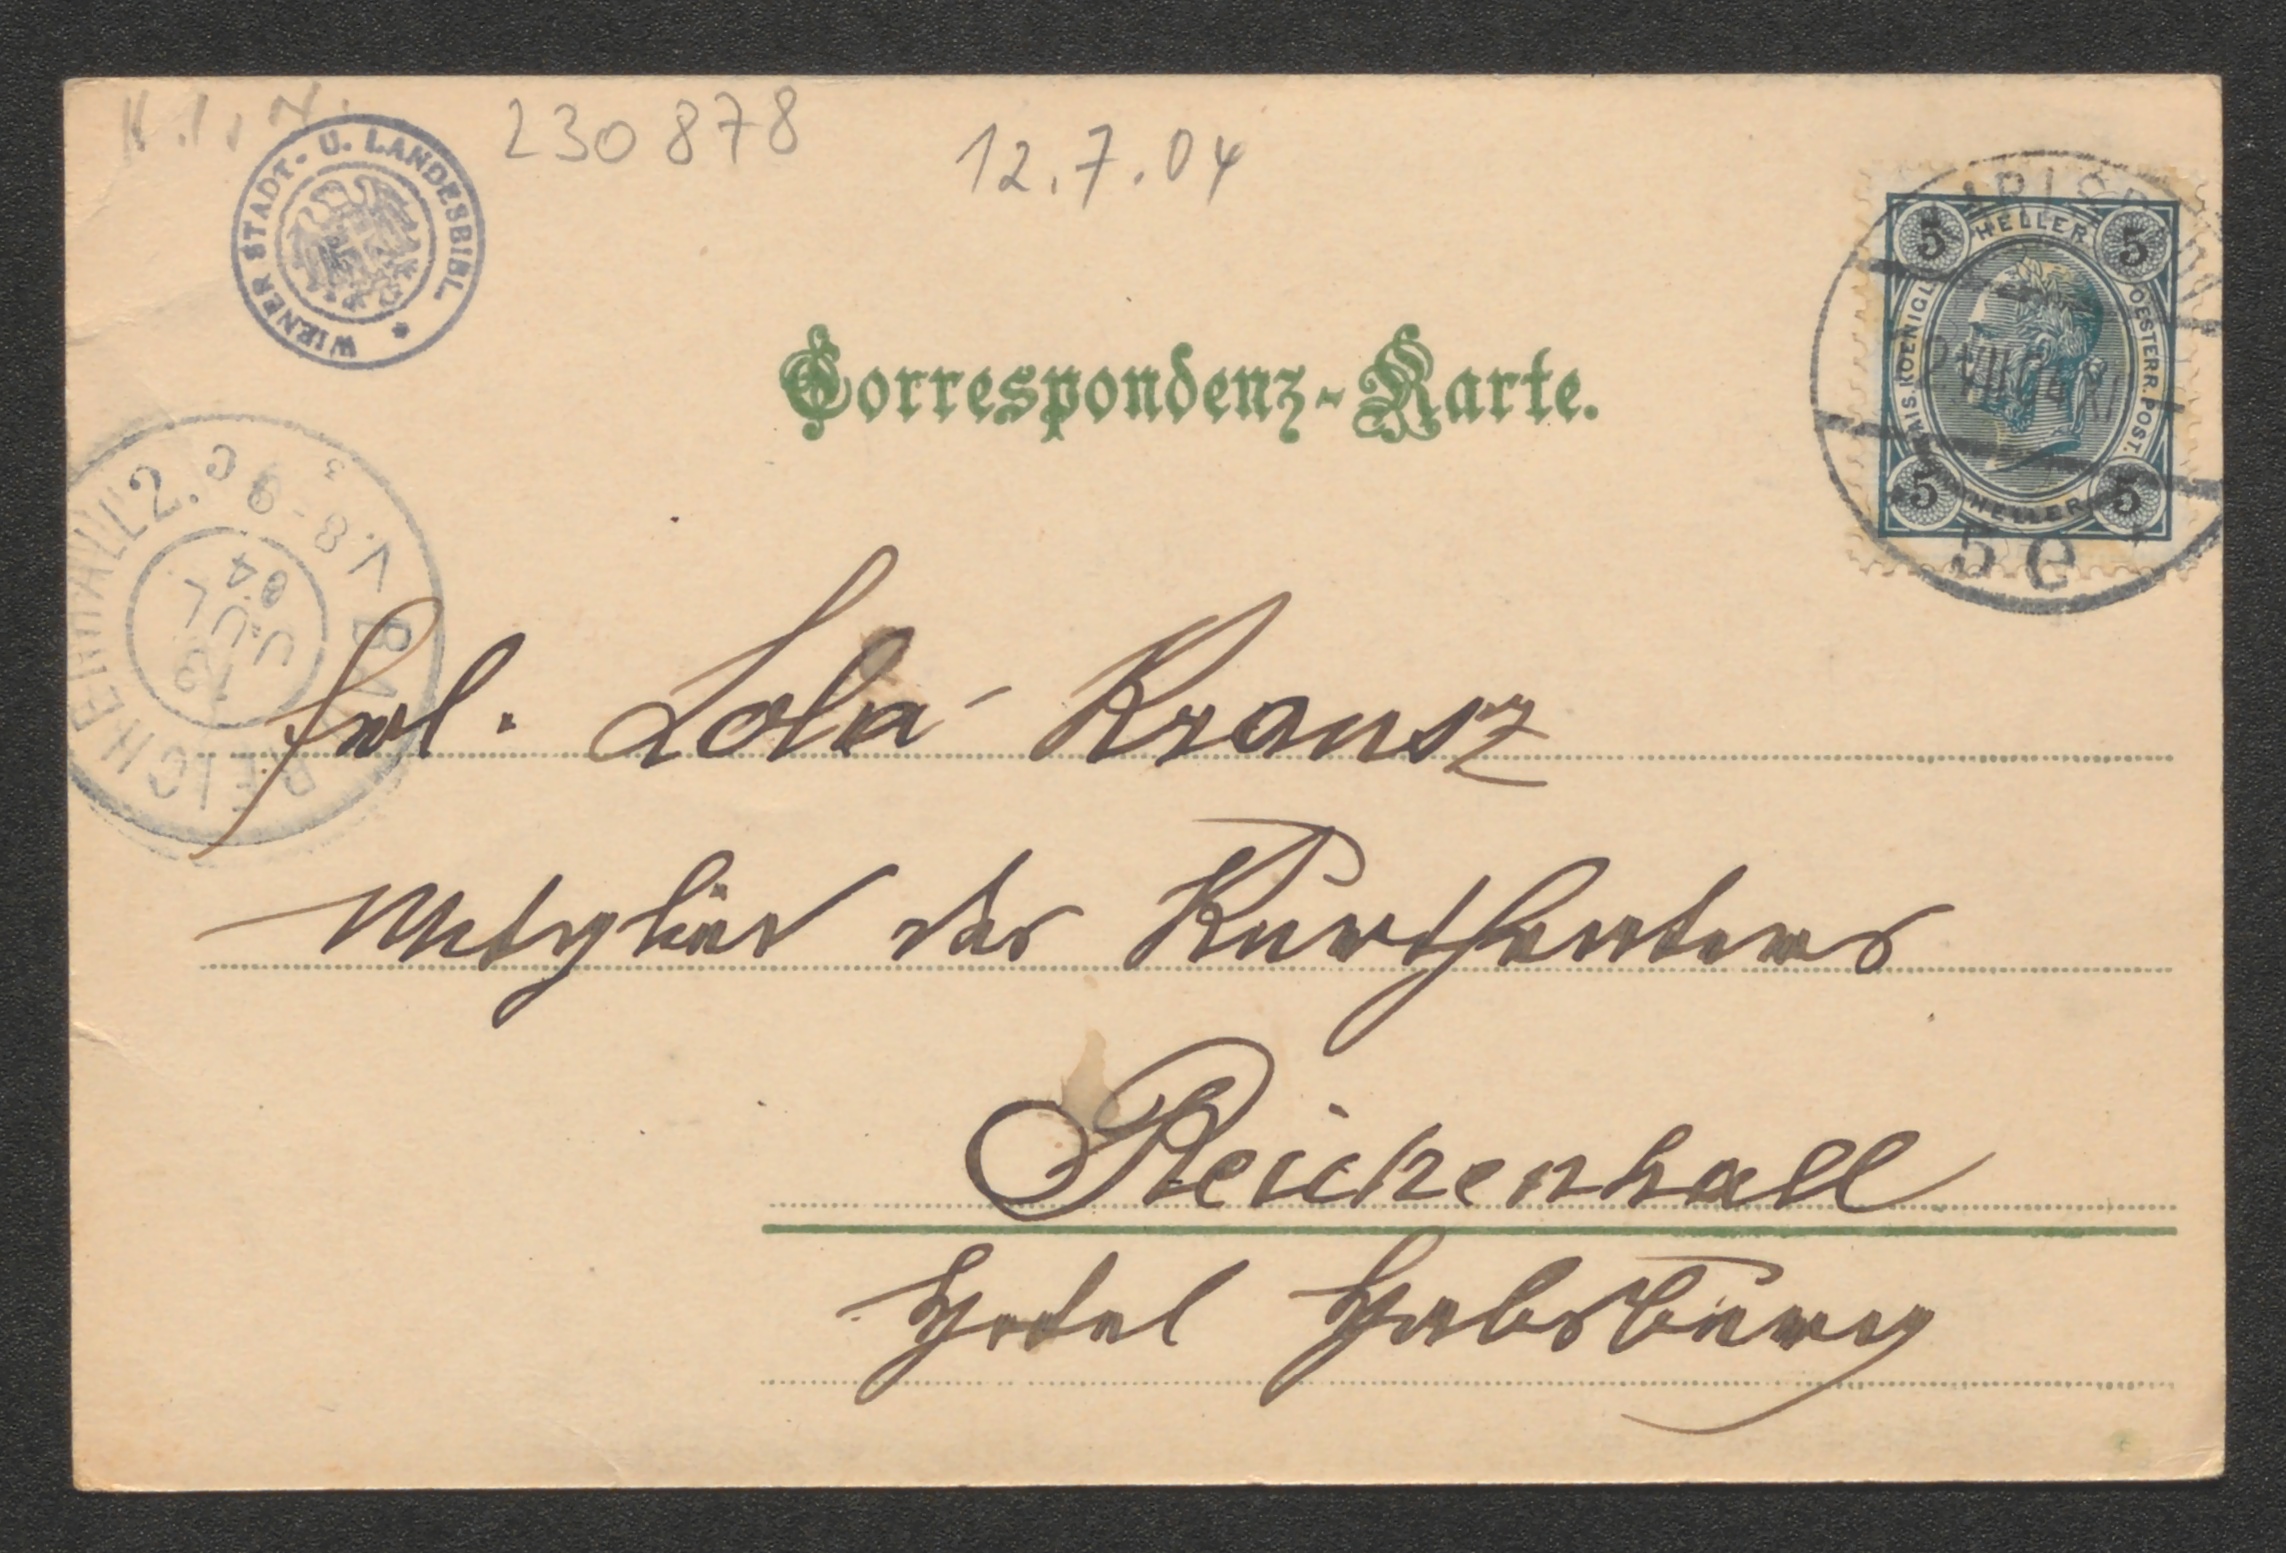 H.I.N. 230878
12.7.04
WIENER STADT- U. LANDESBIBL.
5 HELLER 5
KAIS. KOENIGL. OESTERR. POST.
5 HELLER 5
5e
Correspondenz-Karte.
REICHENHALL 2.
V. 8-9
13
JUL
04
Frl. Lola Kransz
Mitglied des Kurtheaters
Reichenhall
Hotel Habsburg